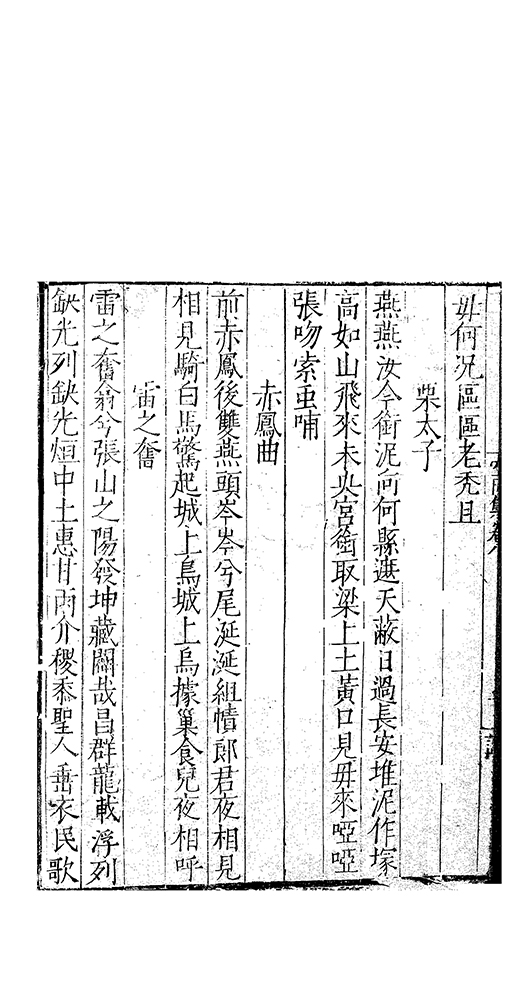 毋何況區區老禿且
栗太子
燕燕汝今銜泥向何縣遮天蔽日過長安堆泥作塚
高如山飛來未央宮銜取梁上土黃口見毋來啞啞
張吻索䖝哺
赤鳳曲
前赤鳳後雙燕頭岑岑兮尾涎涎組幘郎君夜相見
相見騎白馬驚起城上烏城上烏據巢食兒夜相呼
雷之奮
雷之奮翕兮張山之陽發坤藏闢哉昌群龍載浮列
缺光列缺光烜中土惠甘雨介稷黍聖人垂衣民歌